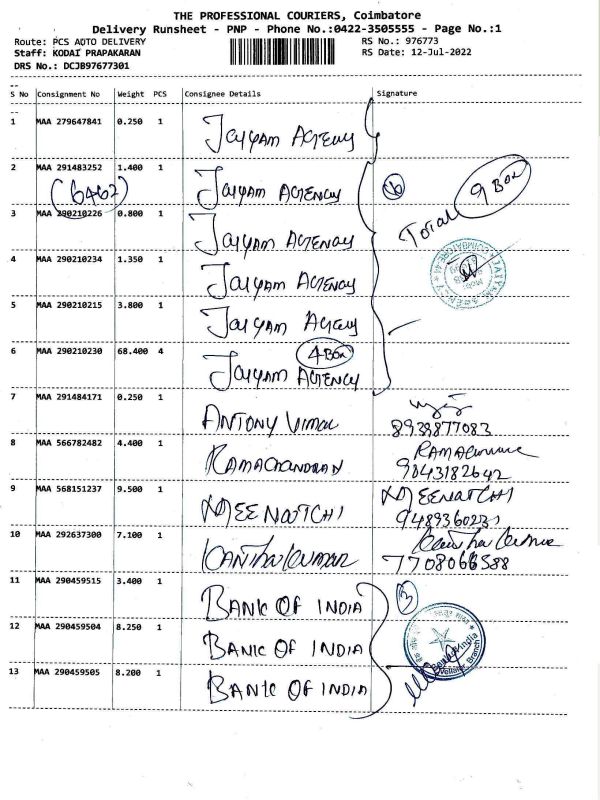 THE PROFESSIONAL COURIERS, Coimbatore
Delivery Runsheet - PNP - Phone No.:0422-3505555 - Page No.:1
Route: PCS AUTO DELIVERY
RS No.: 976773
Staff: KODAI PRAPAKARAN
RS Date: 12-Jul-2022
DRS No.: DCJB97677301
S No Consignment No Weight PCS Consignee Details Signature
1 MAA 279647841 0.250 1 Jaiyam Agency
2 MAA 291483252 1.400 1 Jaiyam Agency
(6462)
6
Total 9 Box
3 MAA 290210226 0.800 1 Jaiyam Agency
4 MAA 290210234 1.350 1 Jaiyam Agency
5 MAA 290210215 3.800 1 Jaiyam Agency
6 MAA 290210230 68.400 4 Jaiyam Agency
4 Box
7 MAA 291484171 0.250 1 Antony Vimal
8939877083
8 MAA 566782482 4.400 1 Ramachandran
9043182642
9 MAA 568151237 9.500 1 Meenatchi Meenatchi
9489360231
10 MAA 292637300 7.100 1 Kanthakumar
7708066588
11 MAA 290459515 3.400 1 Bank Of India
3
12 MAA 290459504 8.250 1 Bank Of India
13 MAA 290459505 8.200 1 Bank Of India